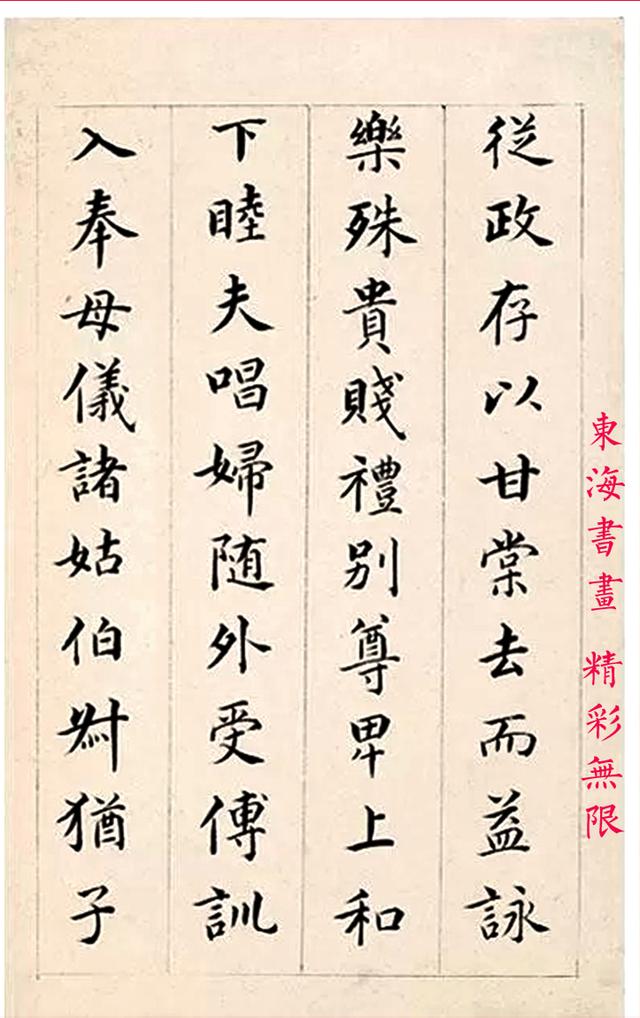 從政存以甘棠去而益詠
樂殊貴賤禮別尊卑上和
下睦夫唱婦随外受傅訓
入奉母儀諸姑伯叔猶子
東海書畫 精彩無限